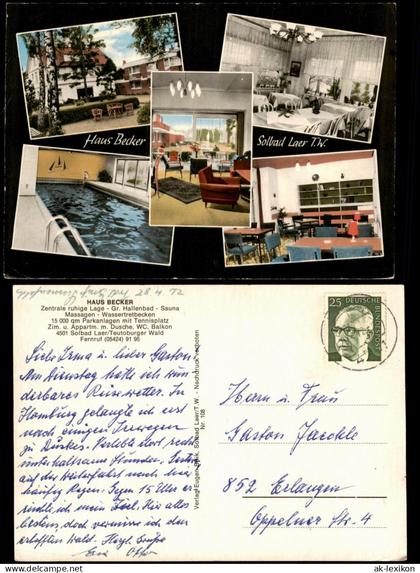 Haus Becker
Solbad Laer T.W.
28.4.72
HAUS BECKER
Zentrale ruhige Lage - Gr. Hallenbad - Sauna
Massagen - Wassertretbecken
15 000 qm Parkanlagen mit Tennisplatz
Zim. u. Appartm. m. Dusche, WC, Balkon
4501 Solbad Laer/Teutoburger Wald
Fernruf (05424) 91 95
Liebe Irma u. lieber Gaston!
Am Dienstag hatte ich wun-
derbares Reisewetter. In
Homburg gelangte ich erst
nach einigen Irrwegen
zu Verlebte dort recht
unterhaltsame Stunden,
auf der Weiterfahrt noch
häufig Regen. Gegen 15 Uhr er-
reichte ich mein Ziel. Hier alles
bestens, doch vermisse ich den
erhofften Wald. Herzl. Grüße
Otto
Verlag Eugen Solbad Laer/T.W. - Nachdruck verboten
Nr. 108
25
DEUTSCHE BUNDESPOST
Herrn u. Frau
Gaston Jaeckle
852 Erlangen
Oppelner Str. 4
© ak-lexikon.com